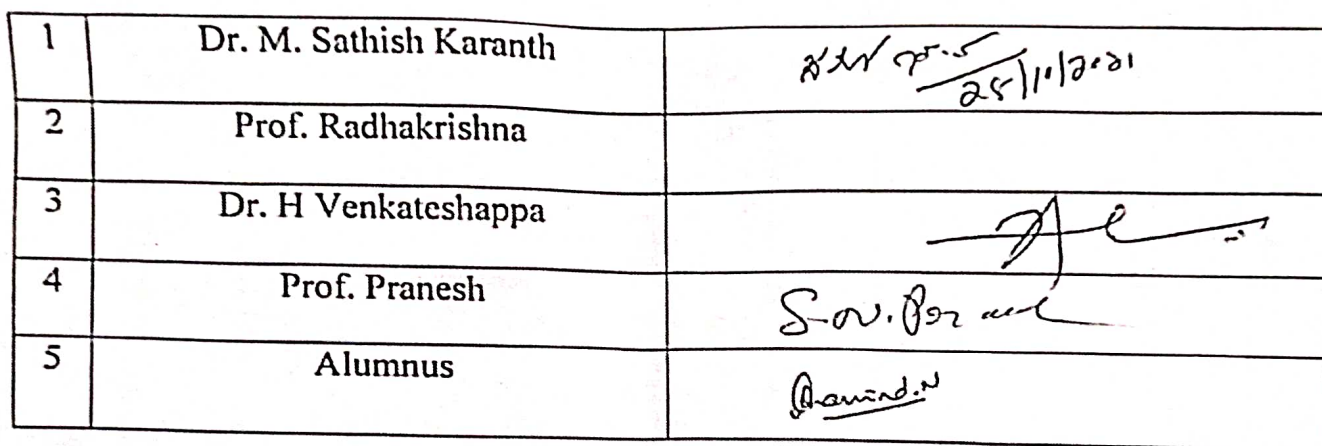 1 Dr. M. Sathish Karanth
25/10/2021
2 Prof. Radhakrishna
3 Dr. H Venkateshappa
4 Prof. Pranesh
5 Alumnus